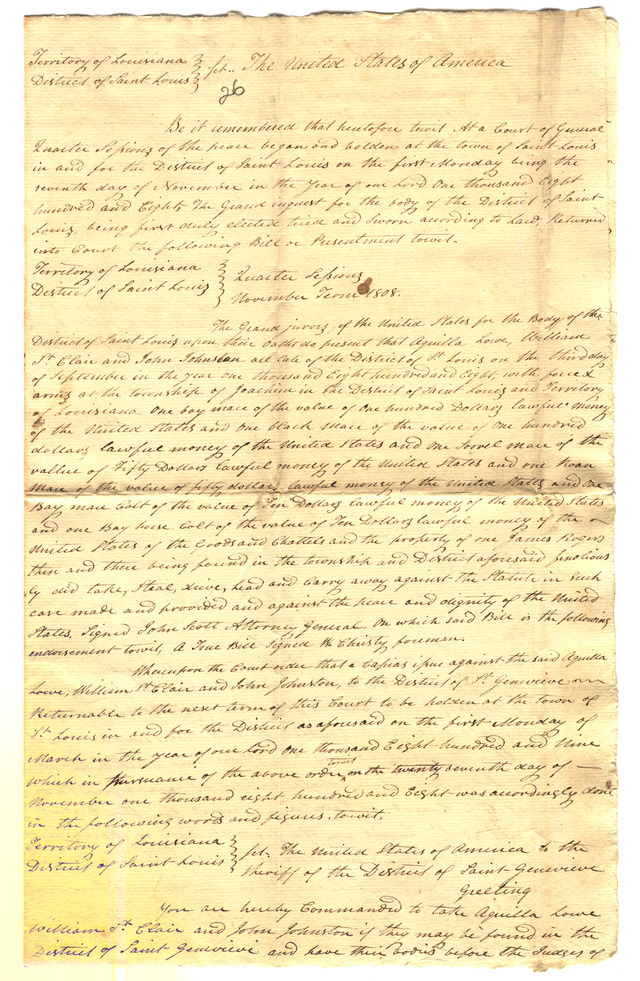 Territory of Louisiana
District of Saint Louis } sct.. The United States of America
26
Be it remembered that heretofore towit. At a Court of General
Quarter Sessions of the peace began and holden at the town of Saint Louis
in and for the District of Saint Louis on the first Monday being the
seventh day of November in the Year of our Lord One thousand Eight
hundred and Eight, The Grand inquest for the body of the District of Saint
Louis, being first duly elected tried and Sworn according to Law, Returned
into Court the following Bill or Presentment towit.
Territory of Louisiana
District of Saint Louis } Quarter Sessions
November Term 1808.
The Grand jurors, of the United States for the Body of the
District of Saint Louis upon their oaths do present that Aquilla Lowe, William
St. Clair and John Johnston all late of the District of St. Louis on the third day
of September in the year one thousand Eight hundred and Eight, with force &
arms at the township of Joachim in the District of Saint Louis and Territory
of Louisiana One bay mare of the value of One hundred Dollars lawful money
of the United States and one black mare of the value of one hundred
dollars lawful money of the United States and one Sorrel mare of the
vallue of Fifty Dollars Lawful money of the United States and one Roan
Mare of the value of fifty dollars lawful money of the United States and One
Bay mare Colt of the value of Ten Dollars lawful money of the United States
and one Bay horse Colt of the value of Ten Dollars lawful money of the
United States of the Goods and Chattels and the property of one James Rogers
then and there being found in the township and District aforesaid felonious
ly did take, Steal, drive, head and Carry away against the Statute in Such
case made and provided and against the peace and dignity of the United
States. Signed John Scott Attorney General. On which said Bill is the following
endorsement towit, A True Bill Signed W. Christy foreman.
Whereupon the Court order that a Capias issue against the said Aquilla
Lowe, William St. Clair and John Johnston, to the District of St. Genevieve
Returnable to the next term of this Court to be holden at the town of
St. Louis in and for the District as aforesaid on the first Monday of
March in the year of our Lord One thousand Eight hundred and Nine
Which in Pursuance of the above order towit on the twenty seventh day of
November one thousand eight hundred and Eight was accordingly done
in the following words and figures. towit.
Territory of Louisiana
District of Saint Louis } Sct. The United States of America to the
Sheriff of the District of Saint Genevieve
Greeting
You are hereby Commanded to take Aquilla Lowe
William St. Clair and John Johnston if they may be found in the
District of Saint Genevieve and have their bodies before the Judges of